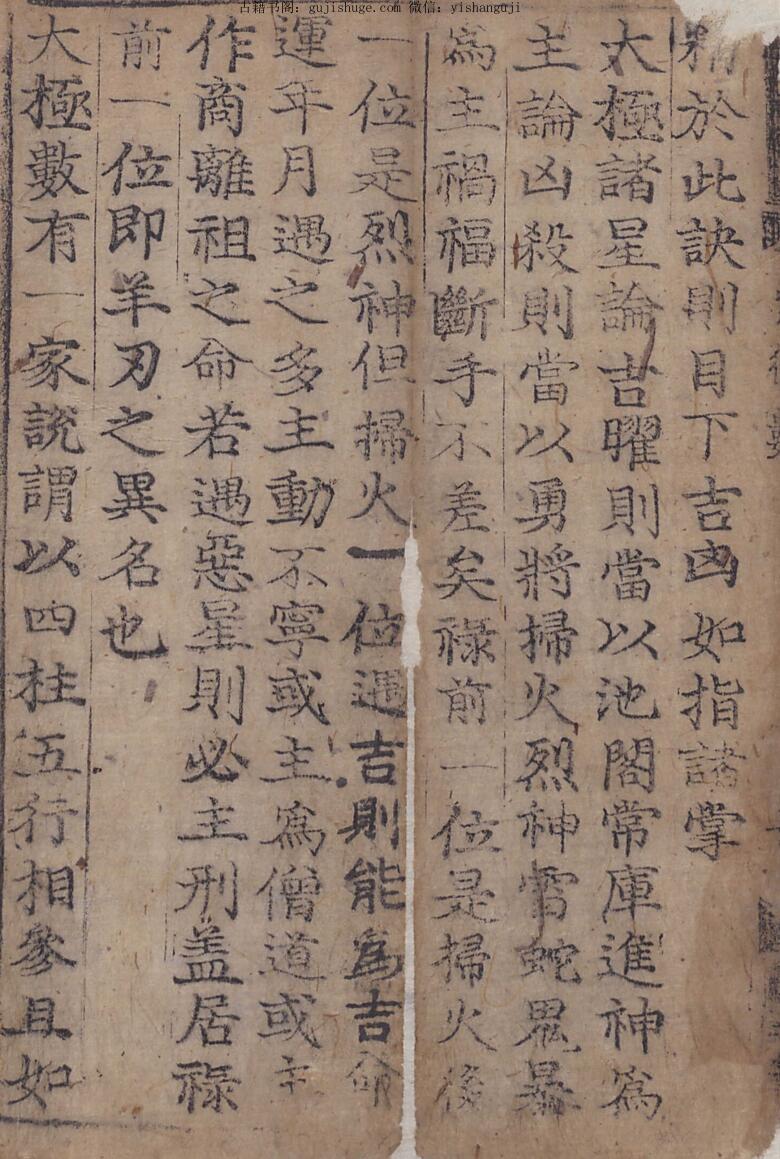 古籍书阁：gujishuge.com 微信：yishanguji
精於此訣則目下吉凶如指諸掌
大極諸星論吉曜則當以池閣常庫進神爲
主論凶殺則當以勇將掃火烈神雷蛇鬼暴
爲主禍福斷乎不差矣祿前一位是掃火後
一位是烈神但掃火一位遇吉則能爲吉命
運年月遇之多主動不寧或主爲僧道或主
作商離祖之命若遇惡星則必主刑盖居祿
前一位即羊刃之異名也
大極數有一家說謂以四柱五行相參且如